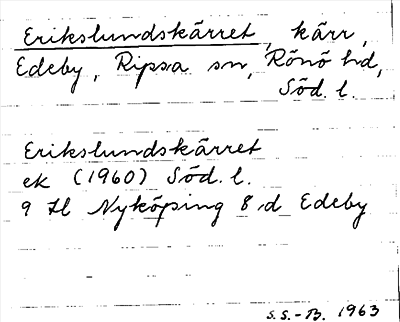 Erikslundskärret, kärr,
Edeby, Ripsa sn, Rönö hd,
Söd. l.
Erikslundskärret
ek (1960) Söd. l.
9 H Nyköping 8 d Edeby
S.S.-B. 1963